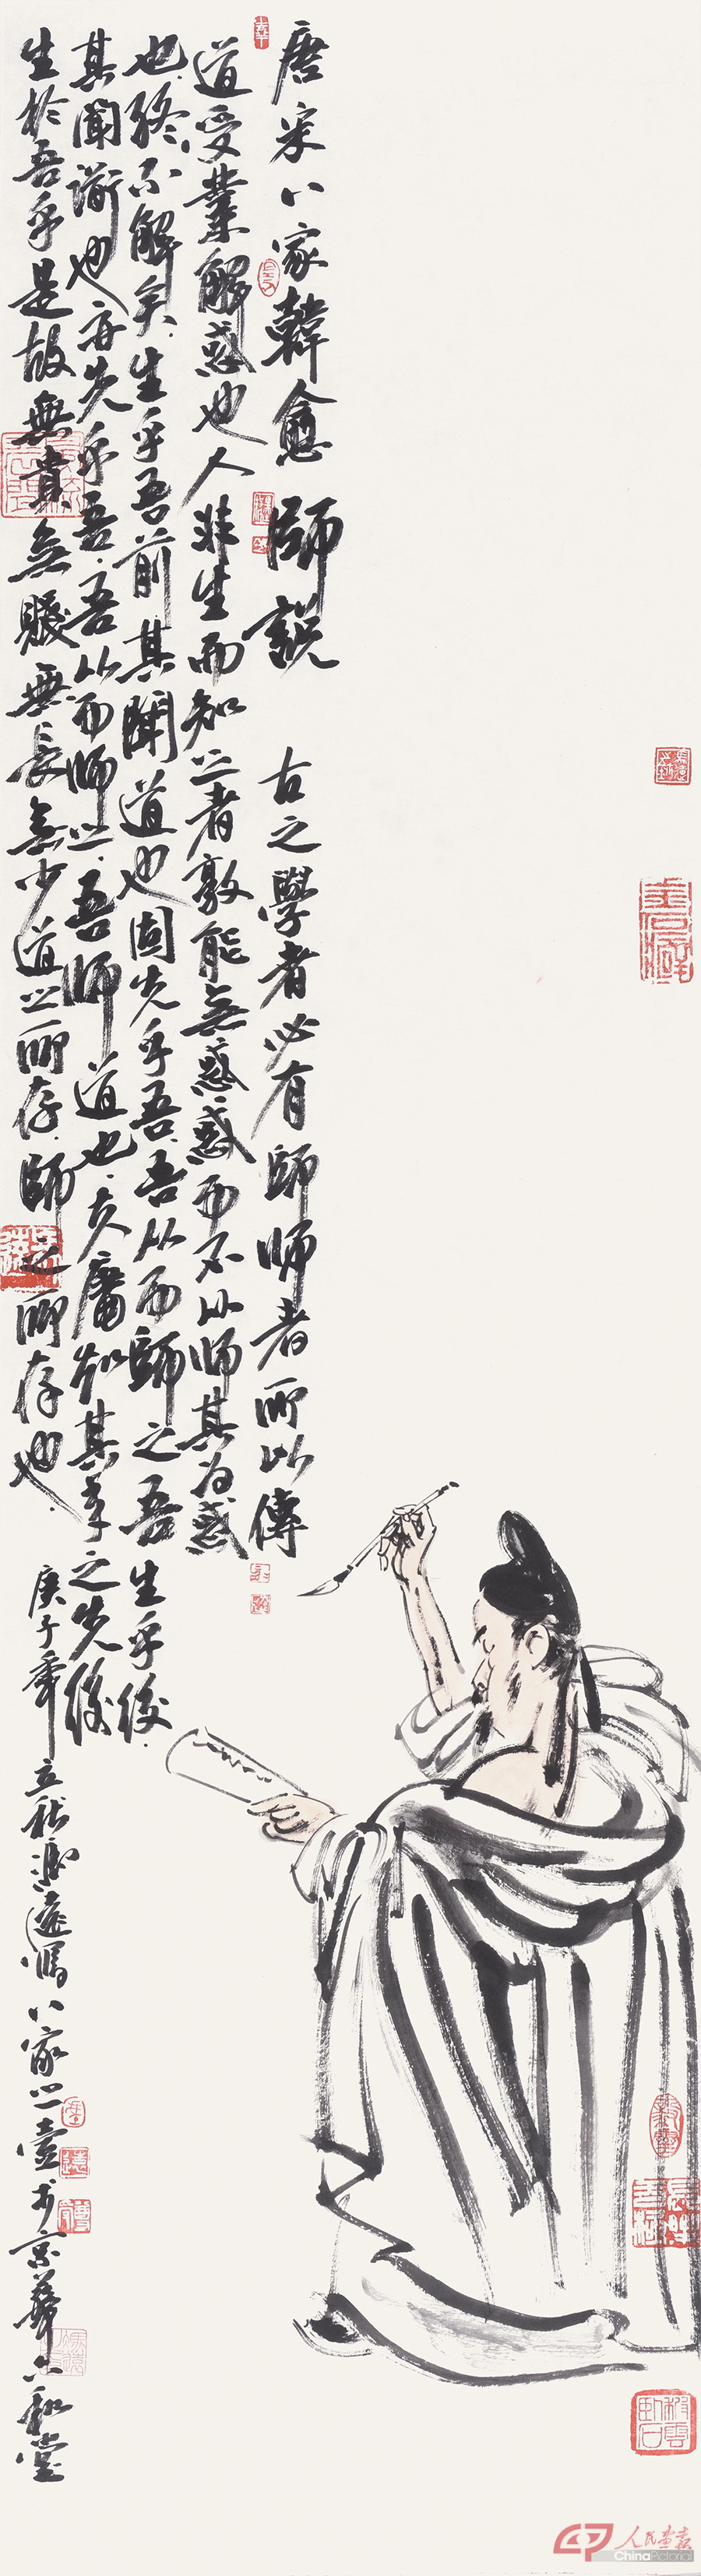 唐宋八家韓愈 師説 古之學者必有師師者所以傳
道受業解惑也人非生而知之者孰能無惑惑而不从師其為惑
也終不解矣生乎吾前其聞道也固先乎吾吾从而師之吾生乎後
其聞道也亦先乎吾吾从而師之吾師道也夫庸知其年之先後
生於吾乎是故無貴無賤無長無少道之所存師之所存也
庚子年立秋 遠 八家之壹於京華六和堂
人民画报
ChinaPictorial